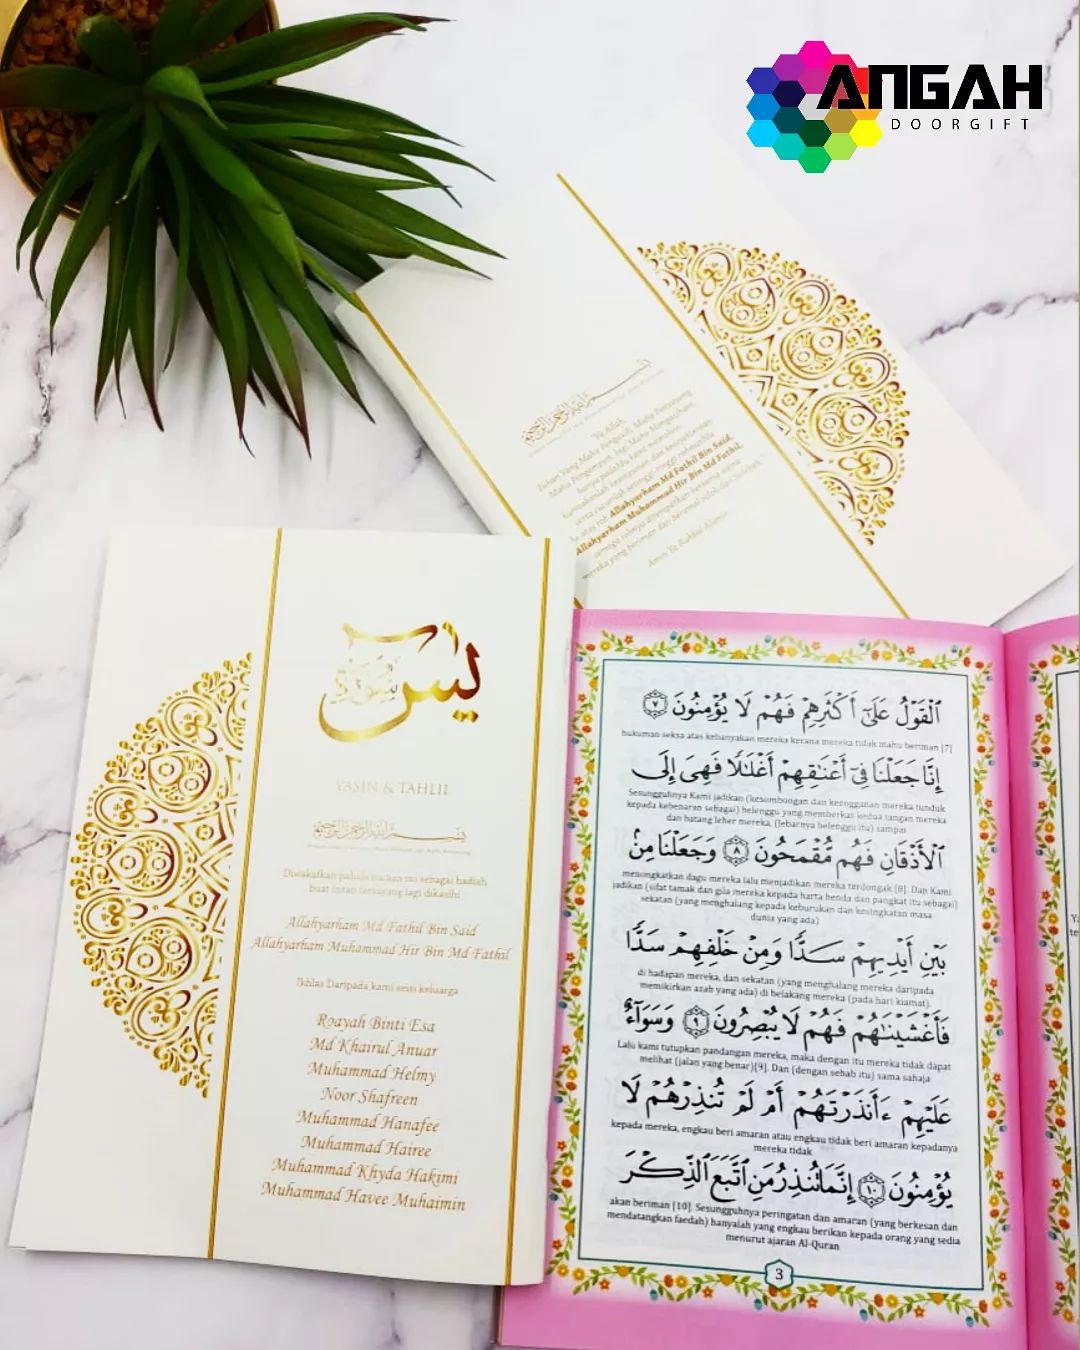 ANGAH
DOORGIFT
Ya Allah,
Tuhan Yang Maha Pengasih, Maha Penyayang
Maha Pengampun, lagi Maha Mengasihani,
Allahyarham Md Fathil Bin Said
Allahyarham Muhammad Hir Bin Md Fathil,
Amin Ya Rabbal Alamin
يس
سورة
YASIN & TAHLIL
بسم الله الرحمن الرحيم
buat insan tersayang lagi dikasihi
Allahyarham Md Fathil Bin Said
Allahyarham Muhammad Hir Bin Md Fathil
Ikhlas Daripada kami seisi keluarga
Roayah Binti Esa
Md Khairul Anuar
Muhammad Helmy
Noor Shafreen
Muhammad Hanafee
Muhammad Hairee
Muhammad Khyda Hakimi
Muhammad Havee Muhaimin
ٱلْقَوْلُ عَلَىٰٓ أَكْثَرِهِمْ فَهُمْ لَا يُؤْمِنُونَ ٧
hukuman seksa atas kebanyakan mereka kerana mereka tidak mahu beriman [7]
إِنَّا جَعَلْنَا فِىٓ أَعْنَـٰقِهِمْ أَغْلَـٰلًا فَهِىَ إِلَى
Sesungguhnya Kami jadikan (kesombongan dan keengganan mereka tunduk
kepada kebenaran sebagai) belenggu yang memberkas kedua tangan mereka
dan batang leher mereka, (lebarnya belenggu itu) sampai
ٱلْأَذْقَانِ فَهُم مُّقْمَحُونَ ٨ وَجَعَلْنَا مِنۢ
menongkatkan dagu mereka lalu menjadikan mereka terdongak [8]. Dan Kami
jadikan (sifat tamak dan gila mereka kepada harta benda dan pangkat itu sebagai)
sekatan (yang menghalang kepada keburukan dan kesingkatan masa
dunia yang ada)
بَيْنِ أَيْدِيهِمْ سَدًّا وَمِنْ خَلْفِهِمْ سَدًّا
di hadapan mereka, dan sekatan (yang menghalang mereka daripada
memikirkan azab yang ada) di belakang mereka (pada hari kiamat).
فَأَغْشَيْنَـٰهُمْ فَهُمْ لَا يُبْصِرُونَ ٩ وَسَوَآءٌ
Lalu kami tutupkan pandangan mereka, maka dengan itu mereka tidak dapat
melihat (jalan yang benar)[9]. Dan (dengan sebab itu) sama sahaja
عَلَيْهِمْ ءَأَنذَرْتَهُمْ أَمْ لَمْ تُنذِرْهُمْ لَا
kepada mereka, engkau beri amaran atau engkau tidak beri amaran kepadanya
mereka tidak
يُؤْمِنُونَ ١٠ إِنَّمَا تُنذِرُ مَنِ ٱتَّبَعَ ٱلذِّكْرَ
akan beriman [10]. Sesungguhnya peringatan dan amaran (yang berkesan dan
mendatangkan faedah) hanyalah yang engkau berikan kepada orang yang sedia
menurut ajaran Al-Quran
3